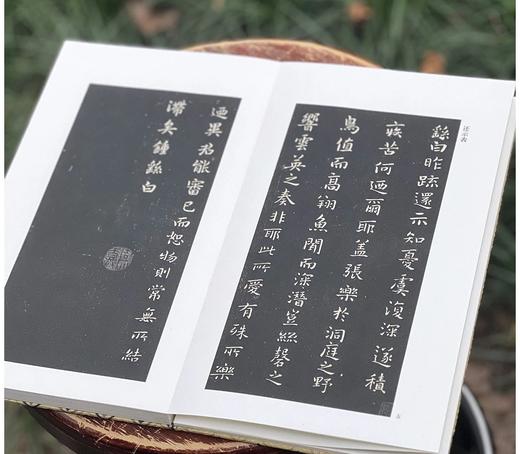 还示表
繇白昨疏還示知憂虞復深遂積
疾苦何迺爾耶蓋張樂於洞庭之野
鳥值而高翔魚聞而深潛豈絲磬之
響雲英之奏非耶此所愛有殊所樂
迺異君能審己而恕物則常無所結
滯矣鍾繇白
五